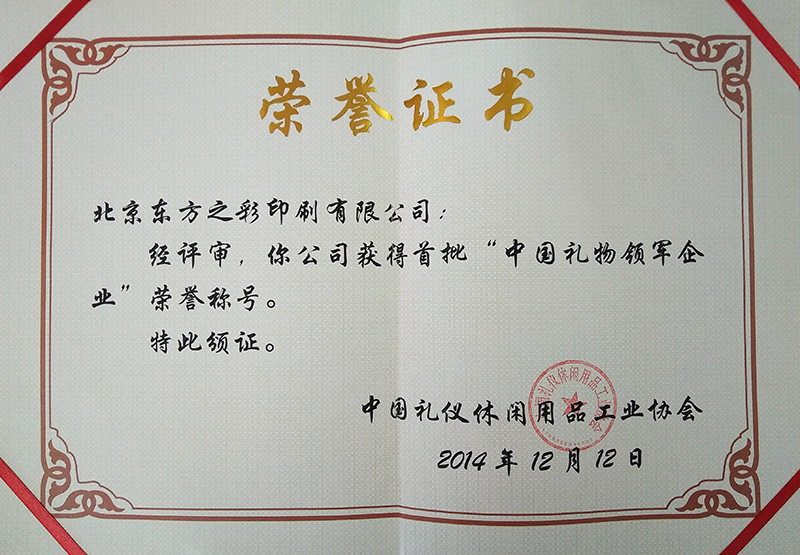 荣誉证书
北京东方之彩印刷有限公司：
经评审，你公司获得首批“中国礼物领军企
业”荣誉称号。
特此须证。
中国礼仪休闲用品工业协会
2014年12月12日